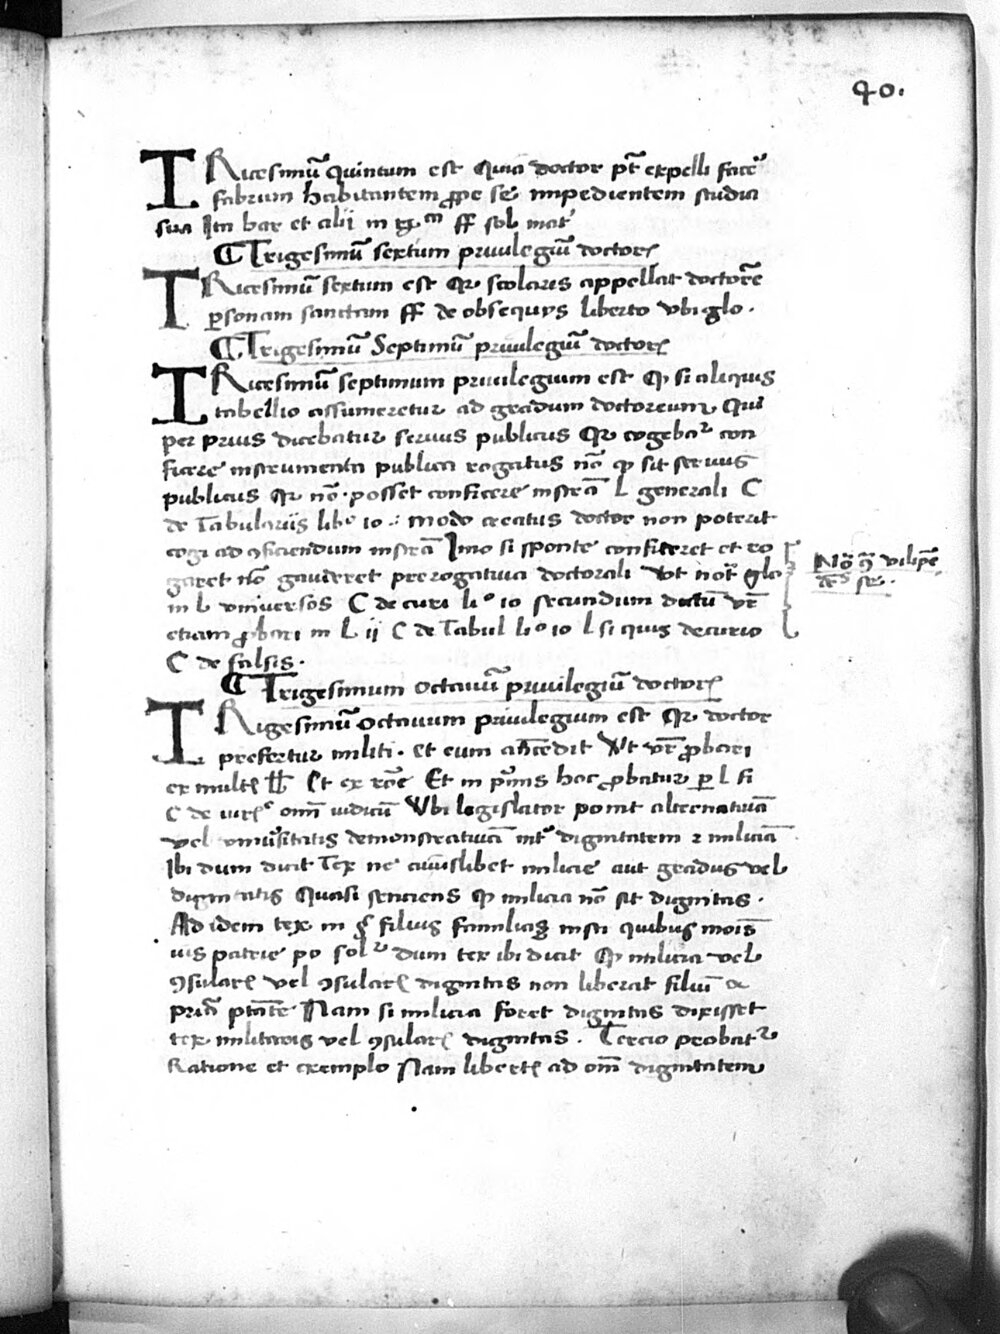 40.
TRicesimū quintum est Quia doctor pt̄ expelli facē
fabrum habitantem ꝓpe se impedientem studia
sua Jta bar et alij in ff sol mat
¶ Trigesimū sextum priuilegiū doctor
TRicesimū sextum est qr scolaris appellat doctorē
ꝑsonam sanctam ff de obsequijs liberto vbi glo .
¶ Trigesimū Septimū priuilegiū doctor
TRicesimū septimum priuilegium est ꝙ si aliquis
tabellio assumeretur ad gradum doctoreum Qui
per prius dicebatur seruus publicus Qr cogebar con
ficere instrumenta publica rogatus nō ꝙ sit seruus
publicus qr nō posset conficere instrā L generali C
de Tabularijs lib° 10 : modo creatus doctor non poterit
cogi ad ꝯficiendum instrā Jmo si sponte conficeret et ro
garet nō gauderet prerogatiua doctorali Vt not glo
in L vniuersos C de curi li° 10 secundum dictū vr̄
etiam ꝓbari in L ij C de Tabul li° 10 L si quis decurio
C de falsis .
Nō ꝯ vilipē
dēs se .
¶ Trigesimum octauū priuilegiū doctor
TRigesimū octauum priuilegium est Qr doctor
prefertur militi . et eum an̄cedit Vt vr̄ ꝓbari
ex mult ll Et ex rōe Et in pīmis hoc ꝓbatur ꝑ L fi
C de iur om̄ iudicū Vbi legislator ponit alternatiuā
vel vniūsitatis demonstratiuā int dignitatem ⁊ miliciā
Jbi dum dicit Tex ne cuiuslibet milicie aut gradus vel
dignitatis Quasi senciens ꝙ milicia nō sit dignitas .
Ad idem tex in § filius familias insti quibus mois
ius patrie po sol dum tex ibi dicit ꝙ milicia vel
ꝯsular vel ꝯsular dignitas non liberat filiū de
priā ptāte Nam si milicia foret dignitas dixisset
tex militaris vel ꝯsular dignitas . Tercio probat
Ratione et exemplo Nam libert ad om̄ dignitatem